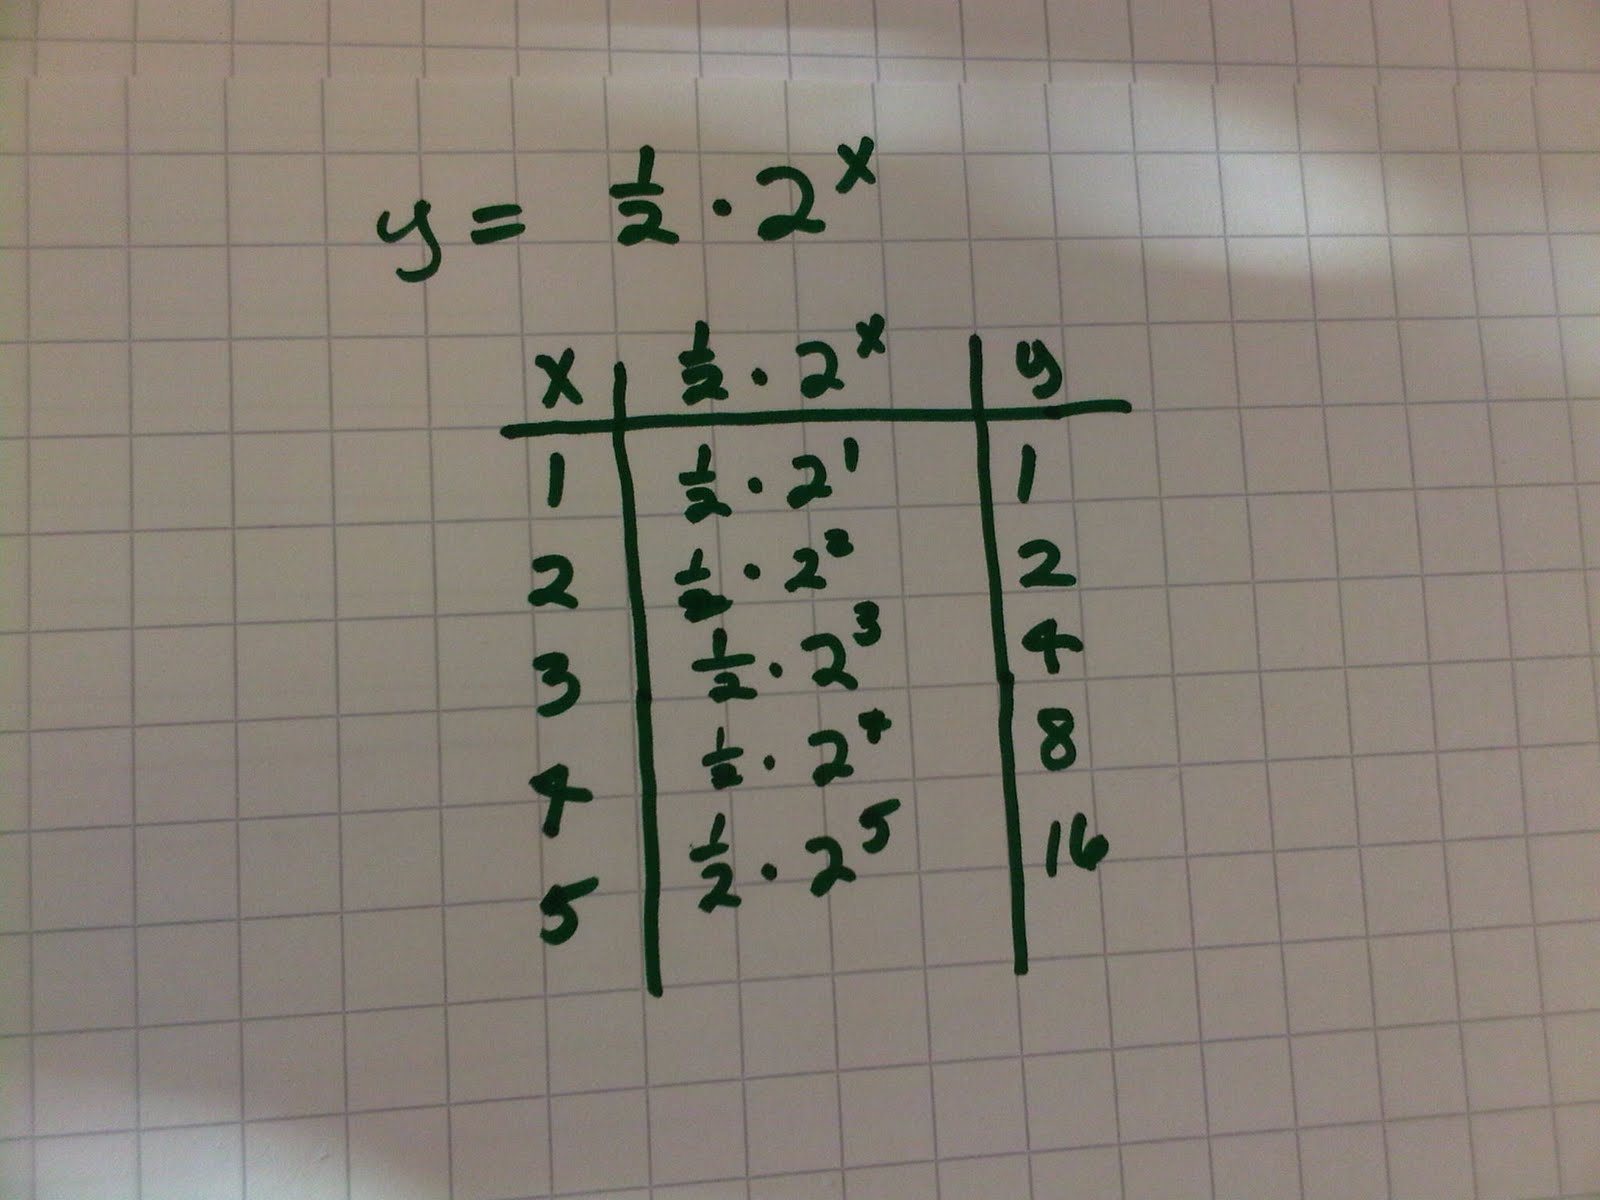 y = 1/2 · 2^x
x | 1/2 · 2^x | y
1 | 1/2 · 2^1 | 1
2 | 1/2 · 2^2 | 2
3 | 1/2 · 2^3 | 4
4 | 1/2 · 2^4 | 8
5 | 1/2 · 2^5 | 16